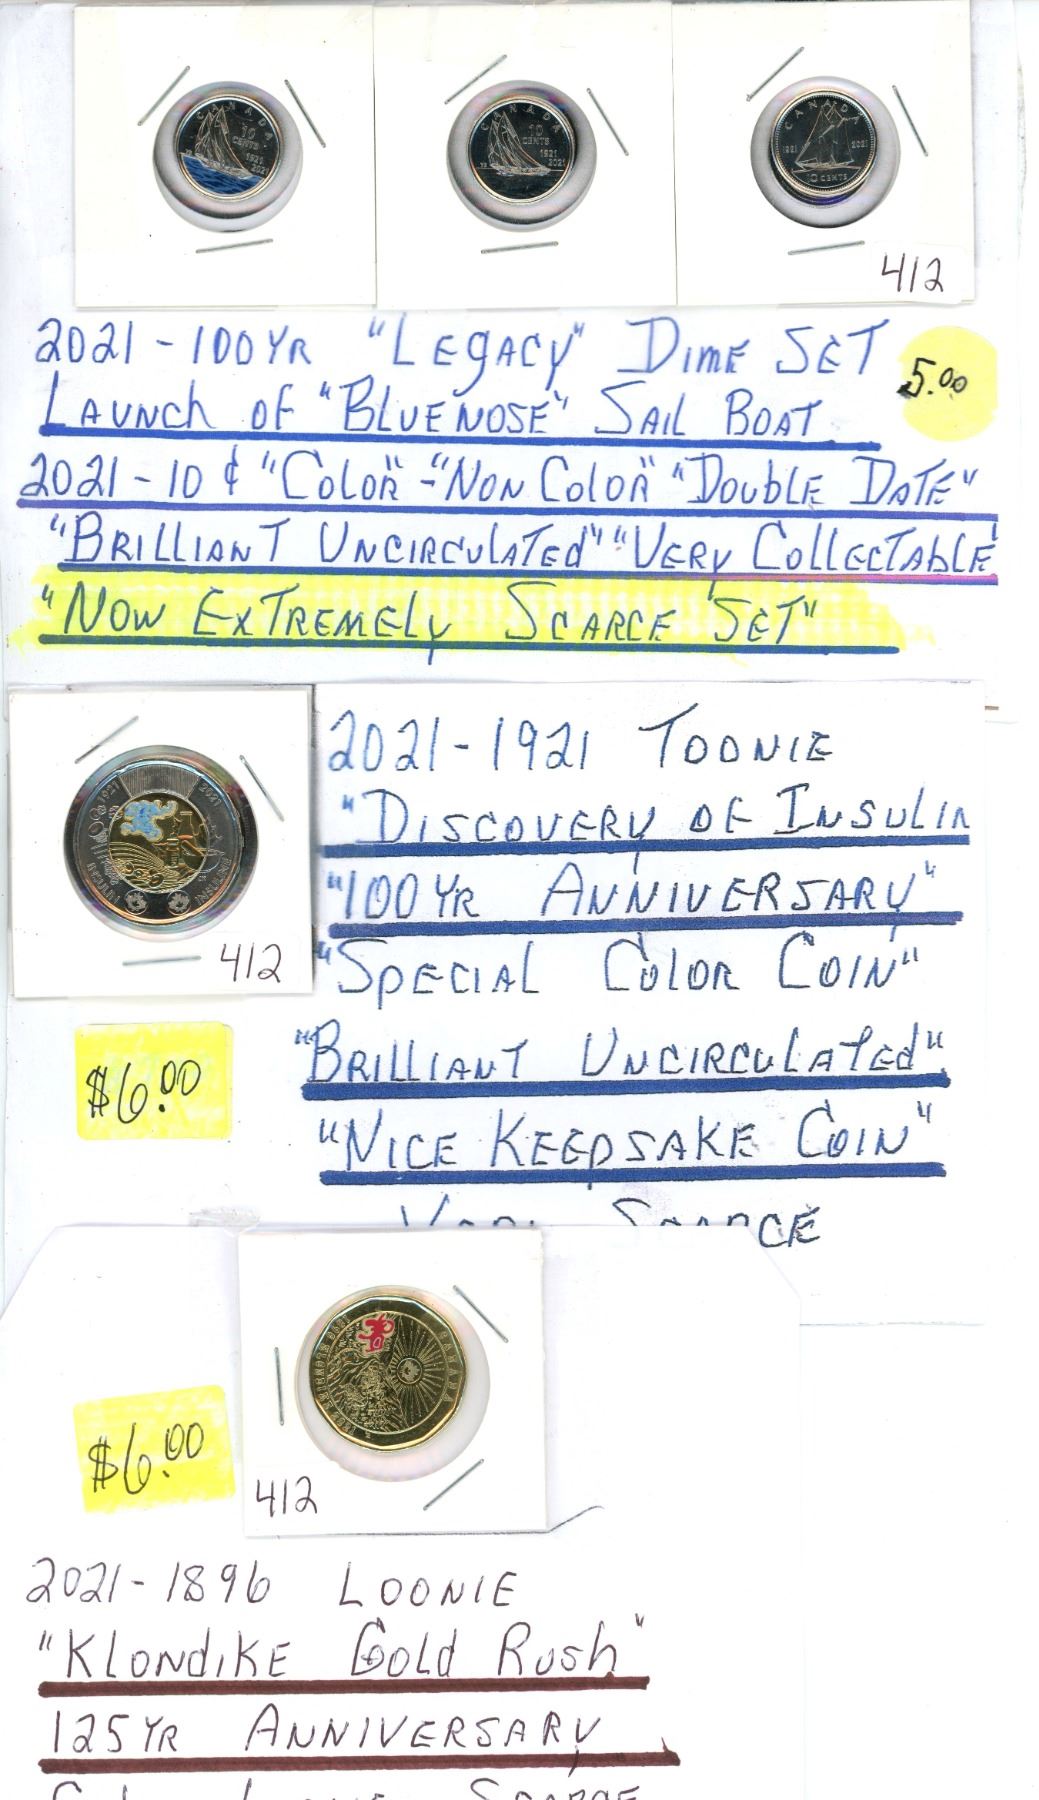 CANADA
10
CENTS
1921
2021
CANADA
10
CENTS
1921
2021
CANADA
1921 2021
10 CENTS
412
2021-100YR "LEGACY" DIME SET
5.00
LAUNCH OF "BLUENOSE" SAIL BOAT
2021-10¢ "COLOR"-"NON COLOR" "DOUBLE DATE"
"BRILLIANT UNCIRCULATED" "VERY COLLECTABLE"
"NOW EXTREMELY SCARCE SET"
2021-1921 TOONIE
"DISCOVERY OF INSULIN
"100YR ANNIVERSARY"
"SPECIAL COLOR COIN"
"BRILLIANT UNCIRCULATED"
"NICE KEEPSAKE COIN"
SCARCE
1921 2021
412
$6.00
CANADA
412
$6.00
2021-1896 LOONIE
"KLONDIKE GOLD RUSH"
125YR ANNIVERSARY